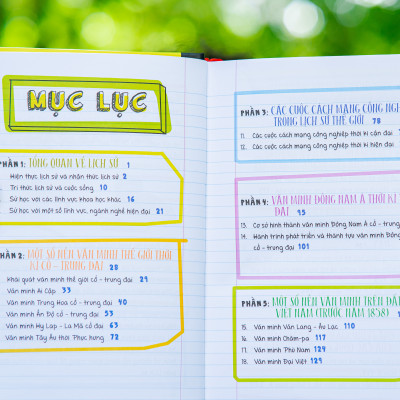 MỤC LỤC
PHẦN 1: TỔNG QUAN VỀ LỊCH SỬ 1
Hiện thực lịch sử và nhận thức lịch sử 2
Tri thức lịch sử và cuộc sống 10
Sử học với các lĩnh vực khoa học khác 16
Sử học với một số lĩnh vực, ngành nghề hiện đại 21
PHẦN 2: MỘT SỐ NỀN VĂN MINH THẾ GIỚI THỜI
KÌ CỔ - TRUNG ĐẠI 28
Khái quát văn minh thế giới cổ - trung đại 29
Văn minh Ai Cập 33
Văn minh Trung Hoa cổ - trung đại 40
Văn minh Ấn Độ cổ - trung đại 53
Văn minh Hy Lạp - La Mã cổ đại 63
Văn minh Tây Âu thời Phục hưng 72
PHẦN 3: CÁC CUỘC CÁCH MẠNG CÔNG
TRONG LỊCH SỬ THẾ GIỚI 78
11. Các cuộc cách mạng công nghiệp thời kì cận đại
12. Các cuộc cách mạng công nghiệp thời kì hiện đại
PHẦN 4: VĂN MINH ĐÔNG NAM Á THỜI KÌ
ĐẠI 95
13. Cơ sở hình thành văn minh Đông Nam Á cổ - trung đại
14. Hành trình phát triển và thành tựu văn minh Đông
cổ - trung đại 101
PHẦN 5: MỘT SỐ NỀN VĂN MINH TRÊN ĐẤT
VIỆT NAM (TRƯỚC NĂM 1858)
15. Văn minh Văn Lang - Âu Lạc 110
16. Văn minh Chăm-pa 117
17. Văn minh Phù Nam 124
18. Văn minh Đại Việt 129